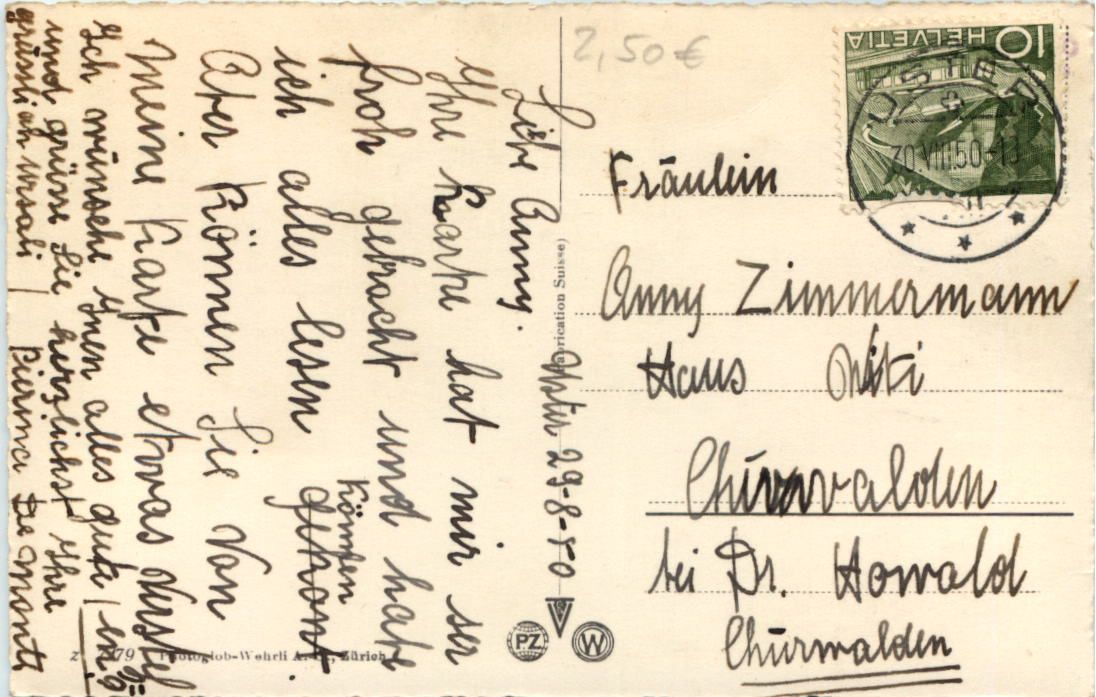 Uster 29-8-50
Liebe Anny.
Ihre Karte hat mir ser
froh gebracht und habe
ich alles lesen gekont
könten
Aber können Sie von
Meine Karte etwas
Ich wünsche Inen alles gute
und grüsse Sie herzlichst Ihre
Pierina De Monti
Z 79 Photoglob-Wehrli A. G., Zürich
(Fabrication Suisse)
PZ
W
2,50 €
10 HELVETIA
USTER
30.VIII.50.-13
Fräulein
Anny Zimmermann
Haus Witi
Churwalden
bei Dr. Howald
Churwalden